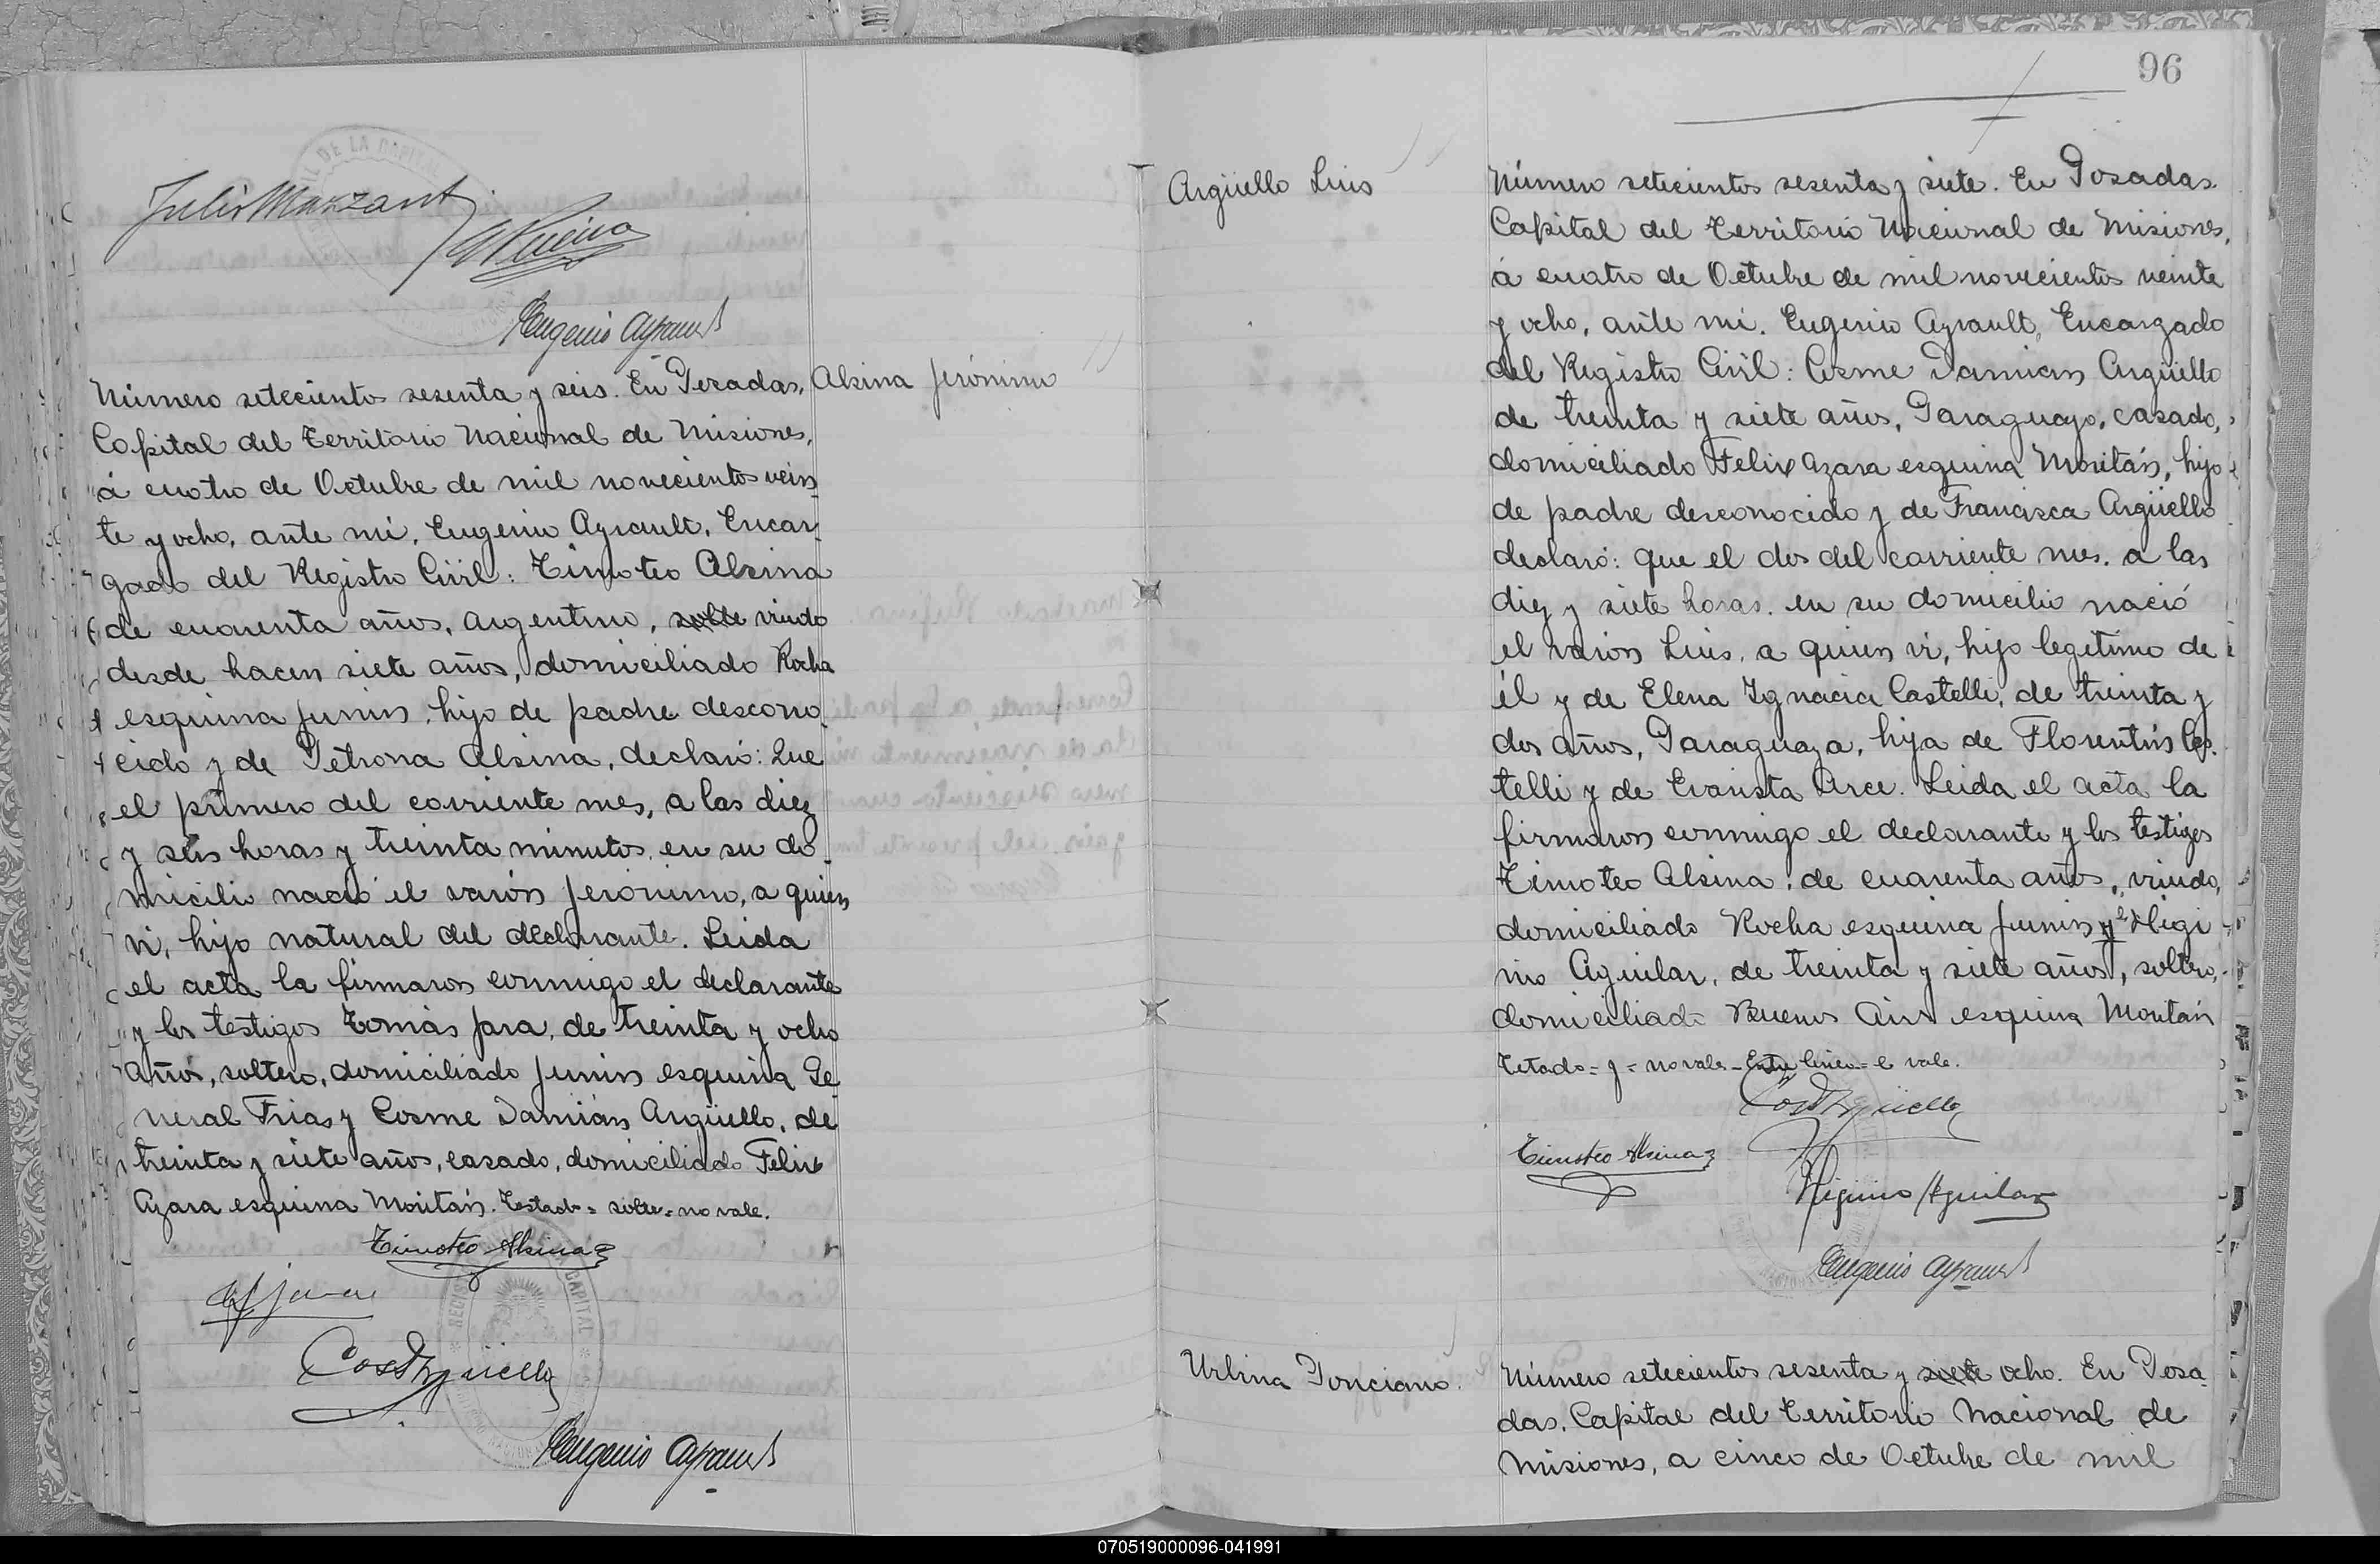 Julio Mazzanti
Eugenio Ayrault
Número setecientos sesenta y seis. En Posadas,
Capital del Territorio Nacional de Misiones,
á cuatro de Octubre de mil novecientos vein-
te y ocho, ante mi, Eugenio Ayrault, Encar-
gado del Registro Civil: Timoteo Alsina
de cuarenta años, Argentino, solte viudo
desde hacen siete años, domiciliado Rocha
esquina Junin, hijo de padre descono-
cido y de Petrona Alsina, declaró: Que
el primero del corriente mes, a las diez
y seis horas y treinta minutos, en su do-
micilio nació el varón Jerónimo, a quien
vi, hijo natural del declarante. Leida
el acta la firmaron conmigo el declarante
y los testigos Tomás Jara, de treinta y ocho
años, soltero, domiciliado Junin esquina Ge-
neral Frias y Cosme Damián Argüello, de
treinta y siete años, casado, domiciliado Felix
Azara esquina Moritán. Testado = solte = no vale.
Timoteo Alsina
Eugenio Ayrault
Alsina Jerónimo
96
Argüello Luis
Número setecientos sesenta y siete. En Posadas
Capital del Territorio Nacional de Misiones,
á cuatro de Octubre de mil novecientos veinte
y ocho, ante mi. Eugenio Ayrault, Encargado
del Registro Civil: Cosme Damian Argüello
de treinta y siete años, Paraguayo, casado,
domiciliado Felix Azara esquina Moritán, hijo
de padre desconocido y de Francisca Argüello
declaró: que el dos del corriente mes. a las
diez y siete horas. en su domicilio nació
el varon Luis, a quien vi, hijo legitimo de
él y de Elena Ygnacia Castelli, de treinta y
dos años, Paraguaya, hija de Florentin Cas-
telli y de Evarista Arce. Leida el acta la
firmaron conmigo el declarante y los testigos
Timoteo Alsina, de cuarenta años, viudo,
domiciliado Rocha esquina Junin y é Higi
nio Aguilar, de treinta y siete años, soltero,
domiciliado Buenos Aires esquina Moritán
Testado = y = no vale - Entre linea = é vale.
Timoteo Alsina
Higinio Aguilar
Eugenio Ayrault
Urbina Ponciano.
Número setecientos sesenta y siete ocho. En Posa-
das, Capital del Territorio Nacional de
Misiones, a cinco de Octubre de mil
070519000096-041991